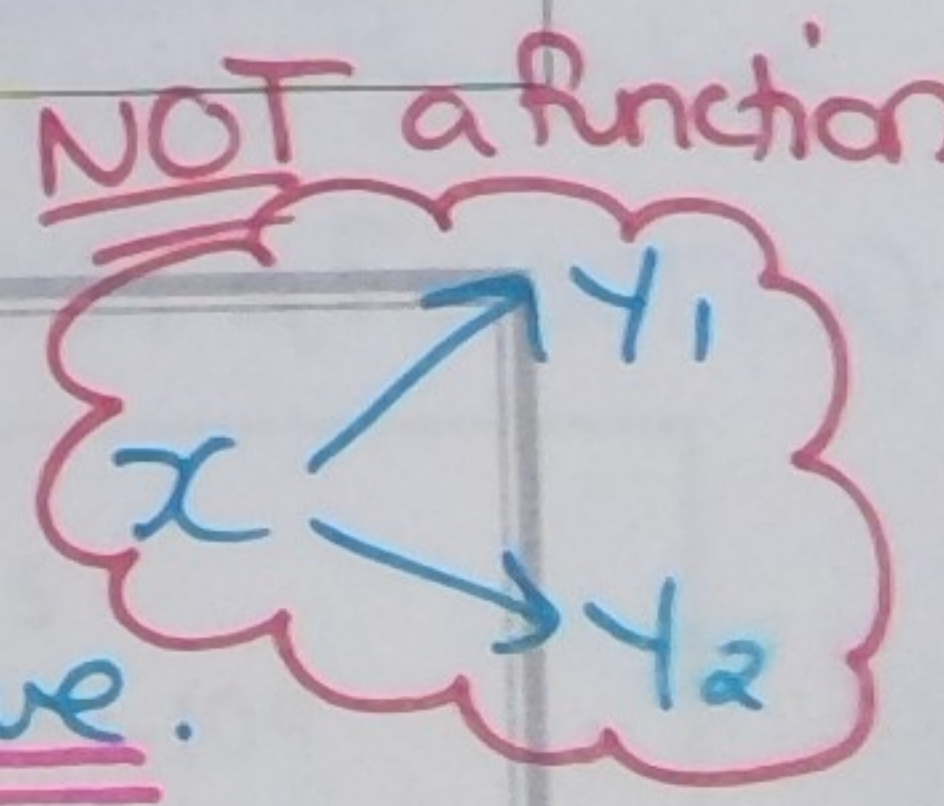 NOT a function
y1
x
y2
ve.